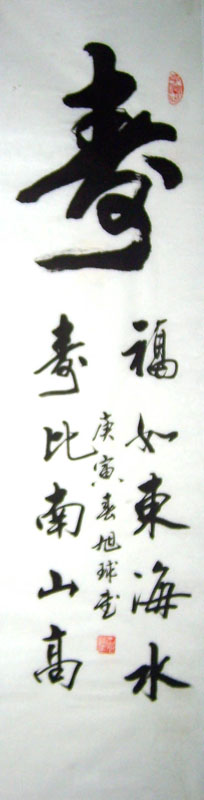 寿
福如東海水
寿比南山高
庚寅春旭球书